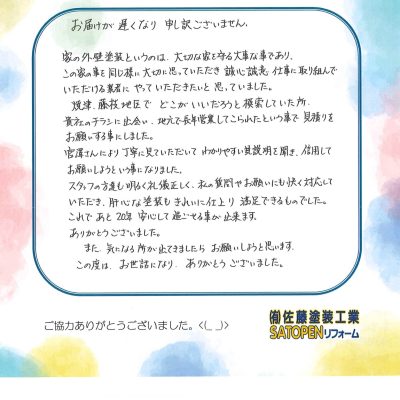 お届けが遅くなり申し訳ございません。
家の外壁塗装というのは、大切な家を守る大事な事であり、
この家の事を同じ様に大切に思っていただき誠心誠意仕事に取り組んで
いただける業者にやっていただきたいと思っていました。
焼津、藤枝地区でどこがいいだろうと模索していた所、
貴社のチラシに出会い、地元で長年営業してこられたという事で見積りを
お願いする事にしました。
宮澤さんにより丁寧に見ていただいてわかりやすい説明を聞き、信用して
お願いしようという事になりました。
スタッフの方達も明るく礼儀正しく、私の質問やお願いにも快く対応して
いただき、肝心な塗装もきれいに仕上り満足できるものでした。
これであと20年安心して過ごせる事が出来ます。
ありがとうございました。
また、気になる所が出てきましたらお願いしようと思います。
この度は、お世話になり、ありがとうございました。
ご協力ありがとうございました。<(_ _)>
㈲佐藤塗装工業
SATOPENリフォーム